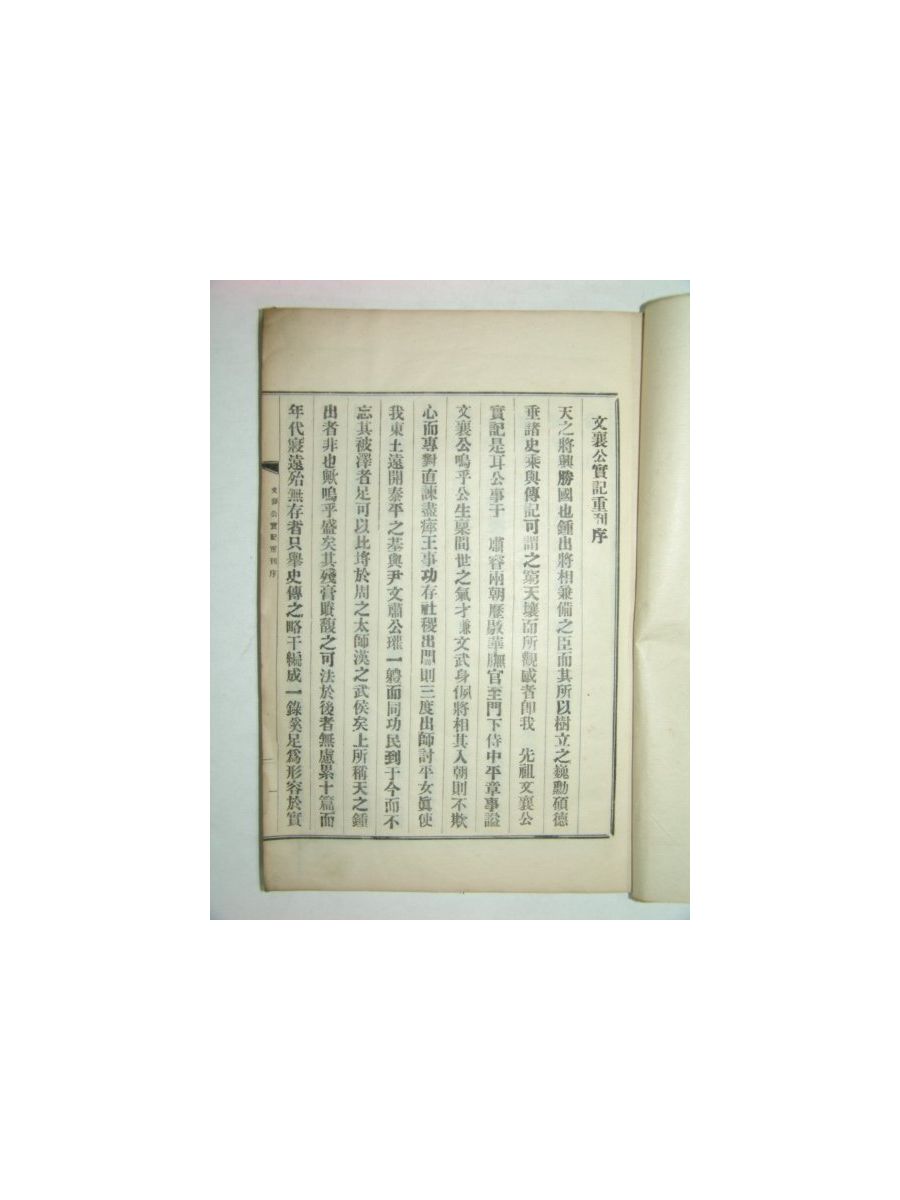 文襄公實記重刊序
天之將興勝國也鍾出將相兼備之臣而其所以樹立之巍勳碩德
垂諸史乘與傳記可謂之窮天壤而所觀感者卽我 先祖文襄公
實記是耳公事于 肅睿兩朝歷敭華膴官至門下侍中平章事諡
文襄公嗚乎公生稟間世之氣才兼文武身佩將相其入朝則不欺
心而專對直諫盡瘁王事功存社稷出閫則三度出師討平女眞使
我東土遠開泰平之基與尹文肅公瓘一體而同功民到于今而不
忘其被澤者足可以比埒於周之太師漢之武侯矣上所稱天之鍾
出者非也歟嗚乎盛矣其殘膏賸馥之可法於後者無慮累十篇而
年代寖遠殆無存者只擧史傳之略干編成一錄奚足爲形容於實
文襄公實記重刊序
一